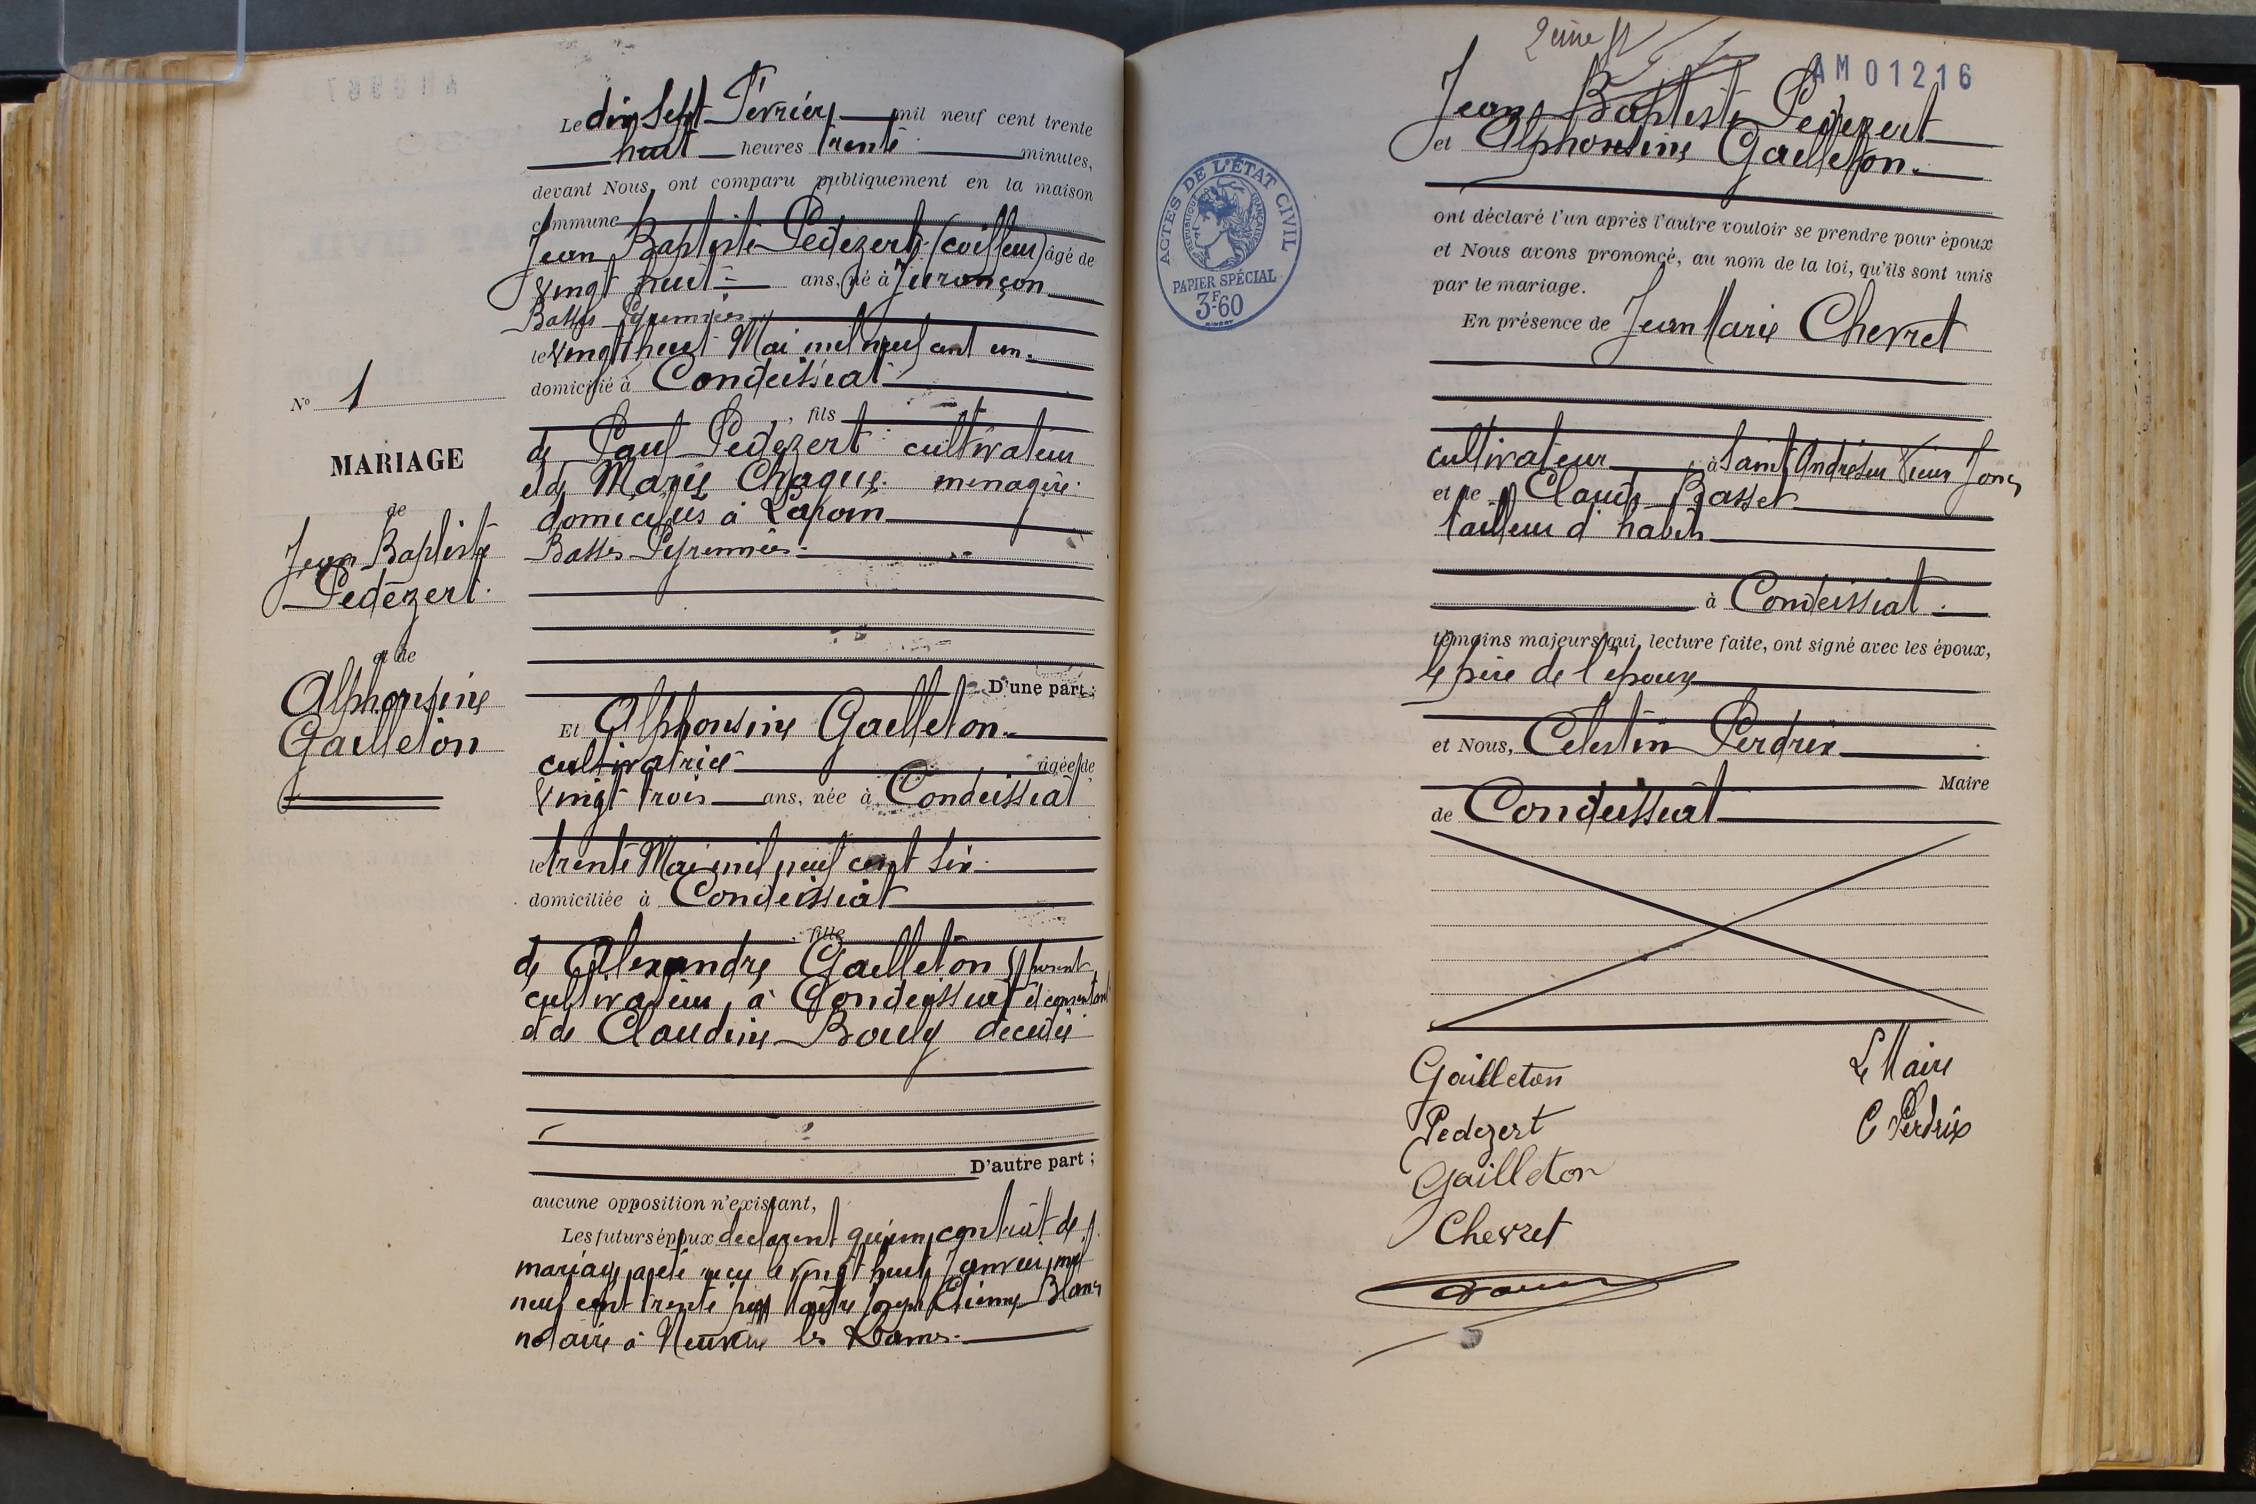 Le dix Sept Février mil neuf cent trente
huit heures trente minutes,
devant Nous, ont comparu publiquement en la maison
commune
Jean Baptiste Pedezert (coiffeur) âgé de
vingt huit ans, né à Jurançon
Basses Pyrennées
le vingt huit Mai mil neuf cent un
domicilié à Condeissiat
, fils
de Paul Pedezert cultivateur
et de Marie Chaque ménagère
domiciliés à
Basses Pyrennées
N° 1
MARIAGE
de
Jean Baptiste
Pedezert
et de
Alphonsine
Gailleton
D'une part ;
Et Alphonsine Gailleton
cultivatrice âgée de
vingt trois ans, née à Condeissiat
le trente Mai mil neuf cent six
domiciliée à Condeissiat
, fille
de Alexandre Gailleton présent
cultivateur à Condeissiat et consentant
et de Claudine Bouly décédée
D'autre part ;
aucune opposition n'existant,
Les futurs époux déclarent qu'un contrat de
mariage a été reçu le vingt huit Janvier mil
neuf cent trente par Maître Joseph Etienne Blanc
notaire à Neuville les Dames
2ème
AM 01216
Jean Baptiste Pedezert
et Alphonsine Gailleton
ACTES DE L'ÉTAT CIVIL
RÉPUBLIQUE FRANÇAISE
PAPIER SPÉCIAL
3F.60
ont déclaré l'un après l'autre vouloir se prendre pour époux
et Nous avons prononcé, au nom de la loi, qu'ils sont unis
par le mariage.
En présence de Jean Marie Chevret
cultivateur, à Saint André sur Vieux Jonc
et de Claude Basset
tailleur d'habits
à Condeissiat
témoins majeurs qui, lecture faite, ont signé avec les époux,
le père de l'épouse
et Nous, Celestin Perdrix
Maire
de Condeissiat
Gailleton
Le Maire
Pedezert
C Perdrix
Gailleton
Chevret